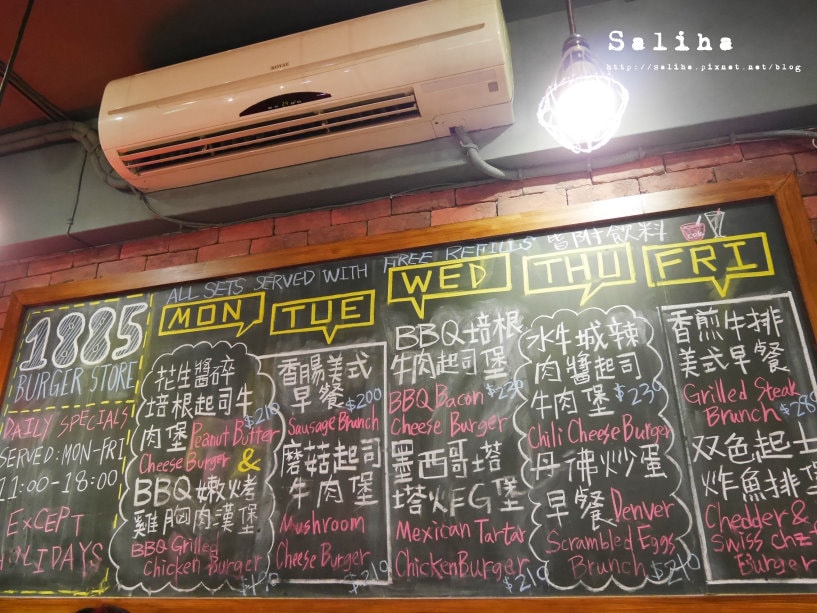 Saliha
http://saliha.pixnet.net/blog
ALL SETS SERVED WITH FREE REFILLS 皆附飲料
1885
BURGER STORE
DAILY SPECIALS
SERVED:MON-FRI
11:00-18:00
EXCEPT
HOLIDAYS
MON
花生醬碎
培根起司牛
肉堡 Peanut Butter $210
Cheese Burger &
BBQ嫩烤
雞胸肉漢堡
BBQ Grilled
Chicken Burger
TUE
香腸美式
早餐 $200
Sausage Brunch
蘑菇起司
牛肉堡
Mushroom
Cheese Burger $210
WED
BBQ培根
牛肉起司堡
BBQ Bacon $230
Cheese Burger
墨西哥塔
塔炸FG堡
Mexican Tartar
Chicken Burger $210
THU
水牛城辣
肉醬起司
牛肉堡 $230
Chili Cheese Burger
丹佛炒蛋
早餐 Denver
Scrambled Eggs
Brunch $210
FRI
香煎牛排
美式早餐
Grilled Steak
Brunch $280
双色起士
炸魚排堡
Chedder &
Swiss chz
Burger